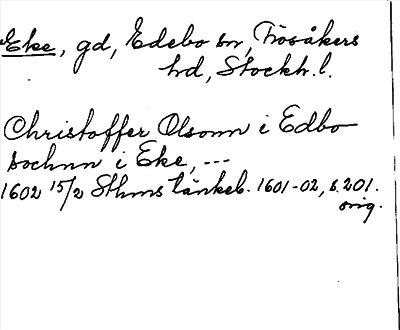 Eke, gd, Edebo sn, Frösåkers
hd, Stockh. l.
Christoffer Olsonn i Edbo
sochnn i Eke, ---
1602 15/2 Sthms tänkeb. 1601-02, s. 201.
orig.